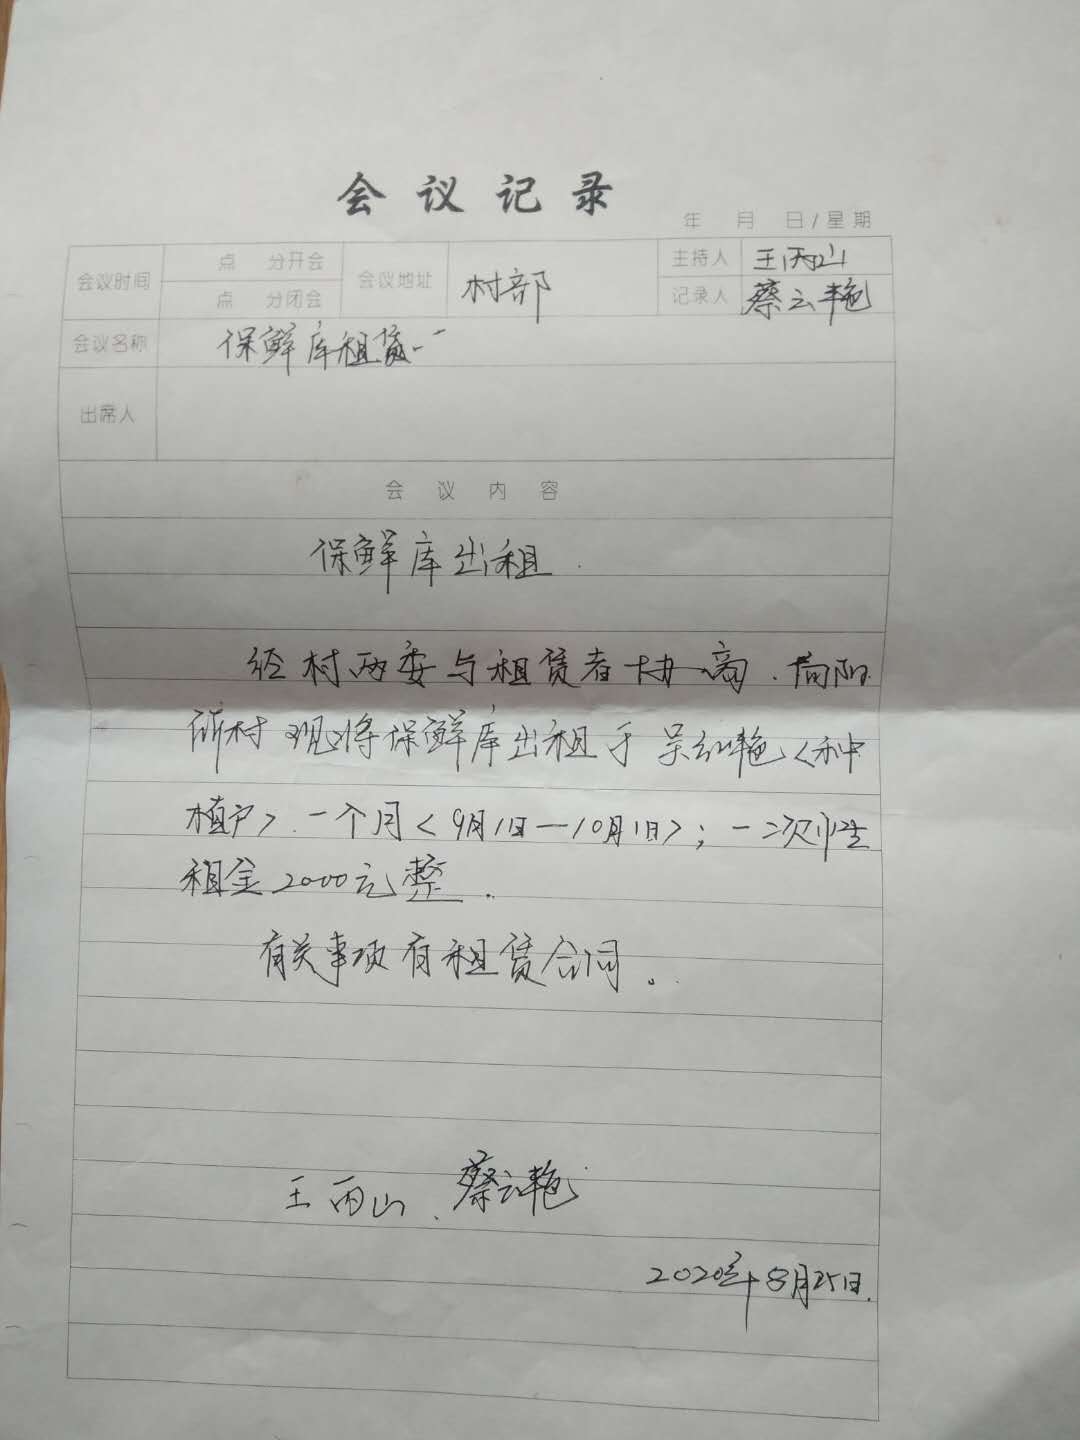 会议记录
年 月 日/星期
会议时间 点 分开会 会议地址 村部 主持人 王丙山
点 分闭会 记录人 蔡云艳
会议名称 保鲜库租赁
出席人
会议内容
保鲜库出租.
经村两委与租赁者协商.向阳
村现将保鲜库出租于吴红艳<种
植户>.一个月<9月1日—10月1日>;一次性
租金2000元整.
有关事项有租赁合同。
王丙山.蔡云艳
2020年8月25日.